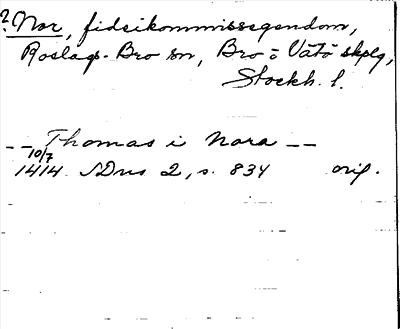 ? Nor, fideikommissegendom,
Roslags-Bro sn, Bro o Vätö skplg,
Stockh. l.
-- Thomas i Nora --
10/7
1414 SDns 2, s. 834 orig.